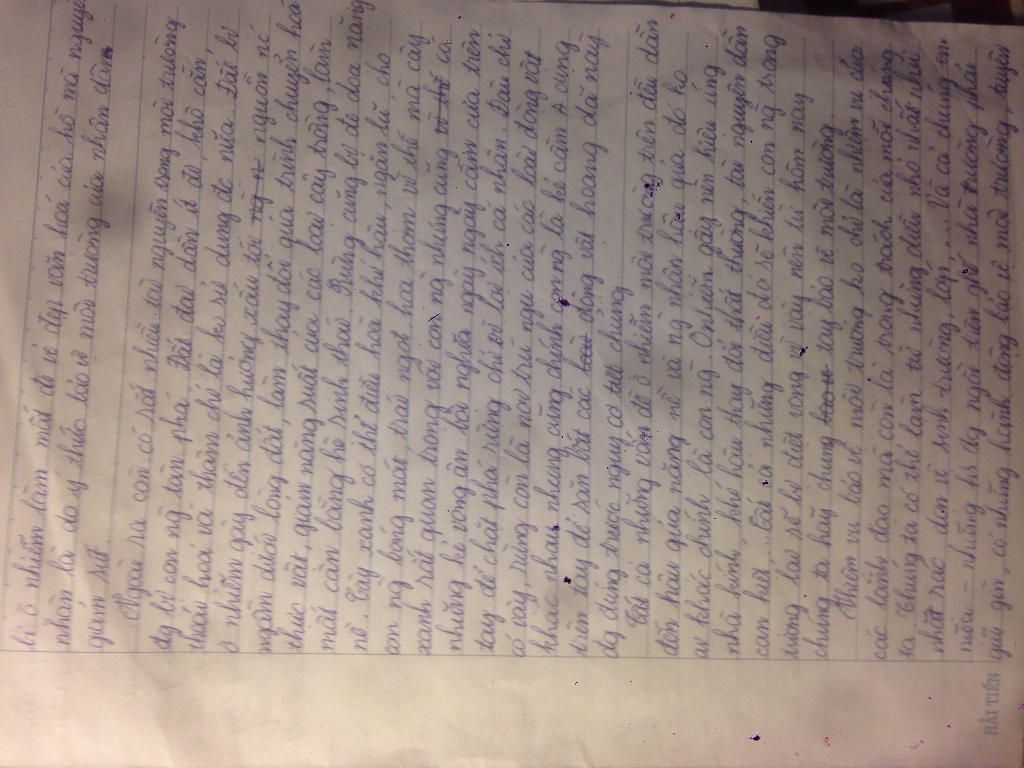 bị ô nhiễm làm mất đi vẻ đẹp văn hoá của hồ mà nguyên
nhân là do ý thức bảo vệ môi trường của nhân dân
giảm sút
Ngoài ra còn có rất nhiều tài nguyên trong môi trường
đg bị con ng tàn phá. Đất đai dần bị khô cằn,
thoái hoá và thậm chí là ko sử dụng đc nữa. Đất bị
ô nhiễm gây đến ảnh hưởng xấu tới nguồn nc
ngầm dưới lòng đất, làm thay đổi quá trình chuyển hoá
thực vật, giảm năng suất của các loại cây trồng, làm
mất cân bằng hệ sinh thái. Rừng cũng bị đe doạ nặng
nề. Cây xanh có thể điều hoà khí hậu ngàn cho
con ng bóng mát, trái ngọt, hoa thơm vì thế mà cây
xanh rất quan trọng với con ng nhưng cũng có
những kẻ vong ân bội nghĩa ngày ngày cầm cưa trên
tay để chặt phá rừng chỉ vì lợi ích cá nhân. Đâu chỉ
có vậy, rừng còn là nơi trú ngụ của các loài động vật
khác nhau nhưng cũng chính con ng là kẻ cầm cung
trên tay để săn bắt các động vật hoang dã này
đg đứng trước nguy cơ tiệt chủng.
Tất cả những vấn đề ô nhiễm môi trường trên đều dẫn
đến hậu quả nặng nề và ng nhận hậu quả đó ko
ai khác chính là con ng. Ô nhiễm gây nên hiệu ứng
nhà kính, khí hậu thay đổi thất thường, tài nguyên dần
cạn kiệt. Tất cả những điều đó sẽ khiến con ng trong
tương lai sẽ bị diệt vong vì vậy nên từ hôm nay
chúng ta hãy chung tay bảo vệ môi trường.
Nhiệm vụ bảo vệ môi trường ko chỉ là nhiệm vụ của
các lãnh đạo mà còn là trọng trách của mỗi chúng
ta. Chúng ta có thể làm từ những điều nhỏ nhất như
nhặt rác, dọn vệ sinh trường, lớp,... Và cả chúng em
nữa - những hs đg ngồi trên ghế nhà trường phải
giữ gìn, có những hành động bảo vệ môi trường, tuyên
HẢI TIẾN